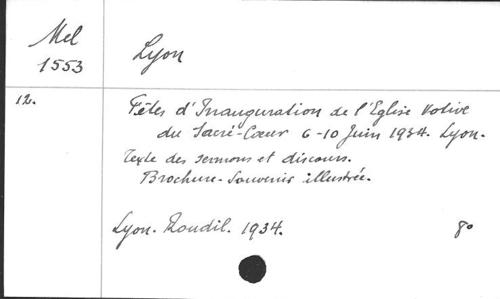 Mel
1553
Lyon
12.
Fêtes d'Inauguration de l'Eglise Votive
du Sacré-Cœur 6-10 Juin 1934. Lyon.
Texte des sermons et discours.
Brochure-Souvenir illustrée.
Lyon. Roudil. 1934. 8º